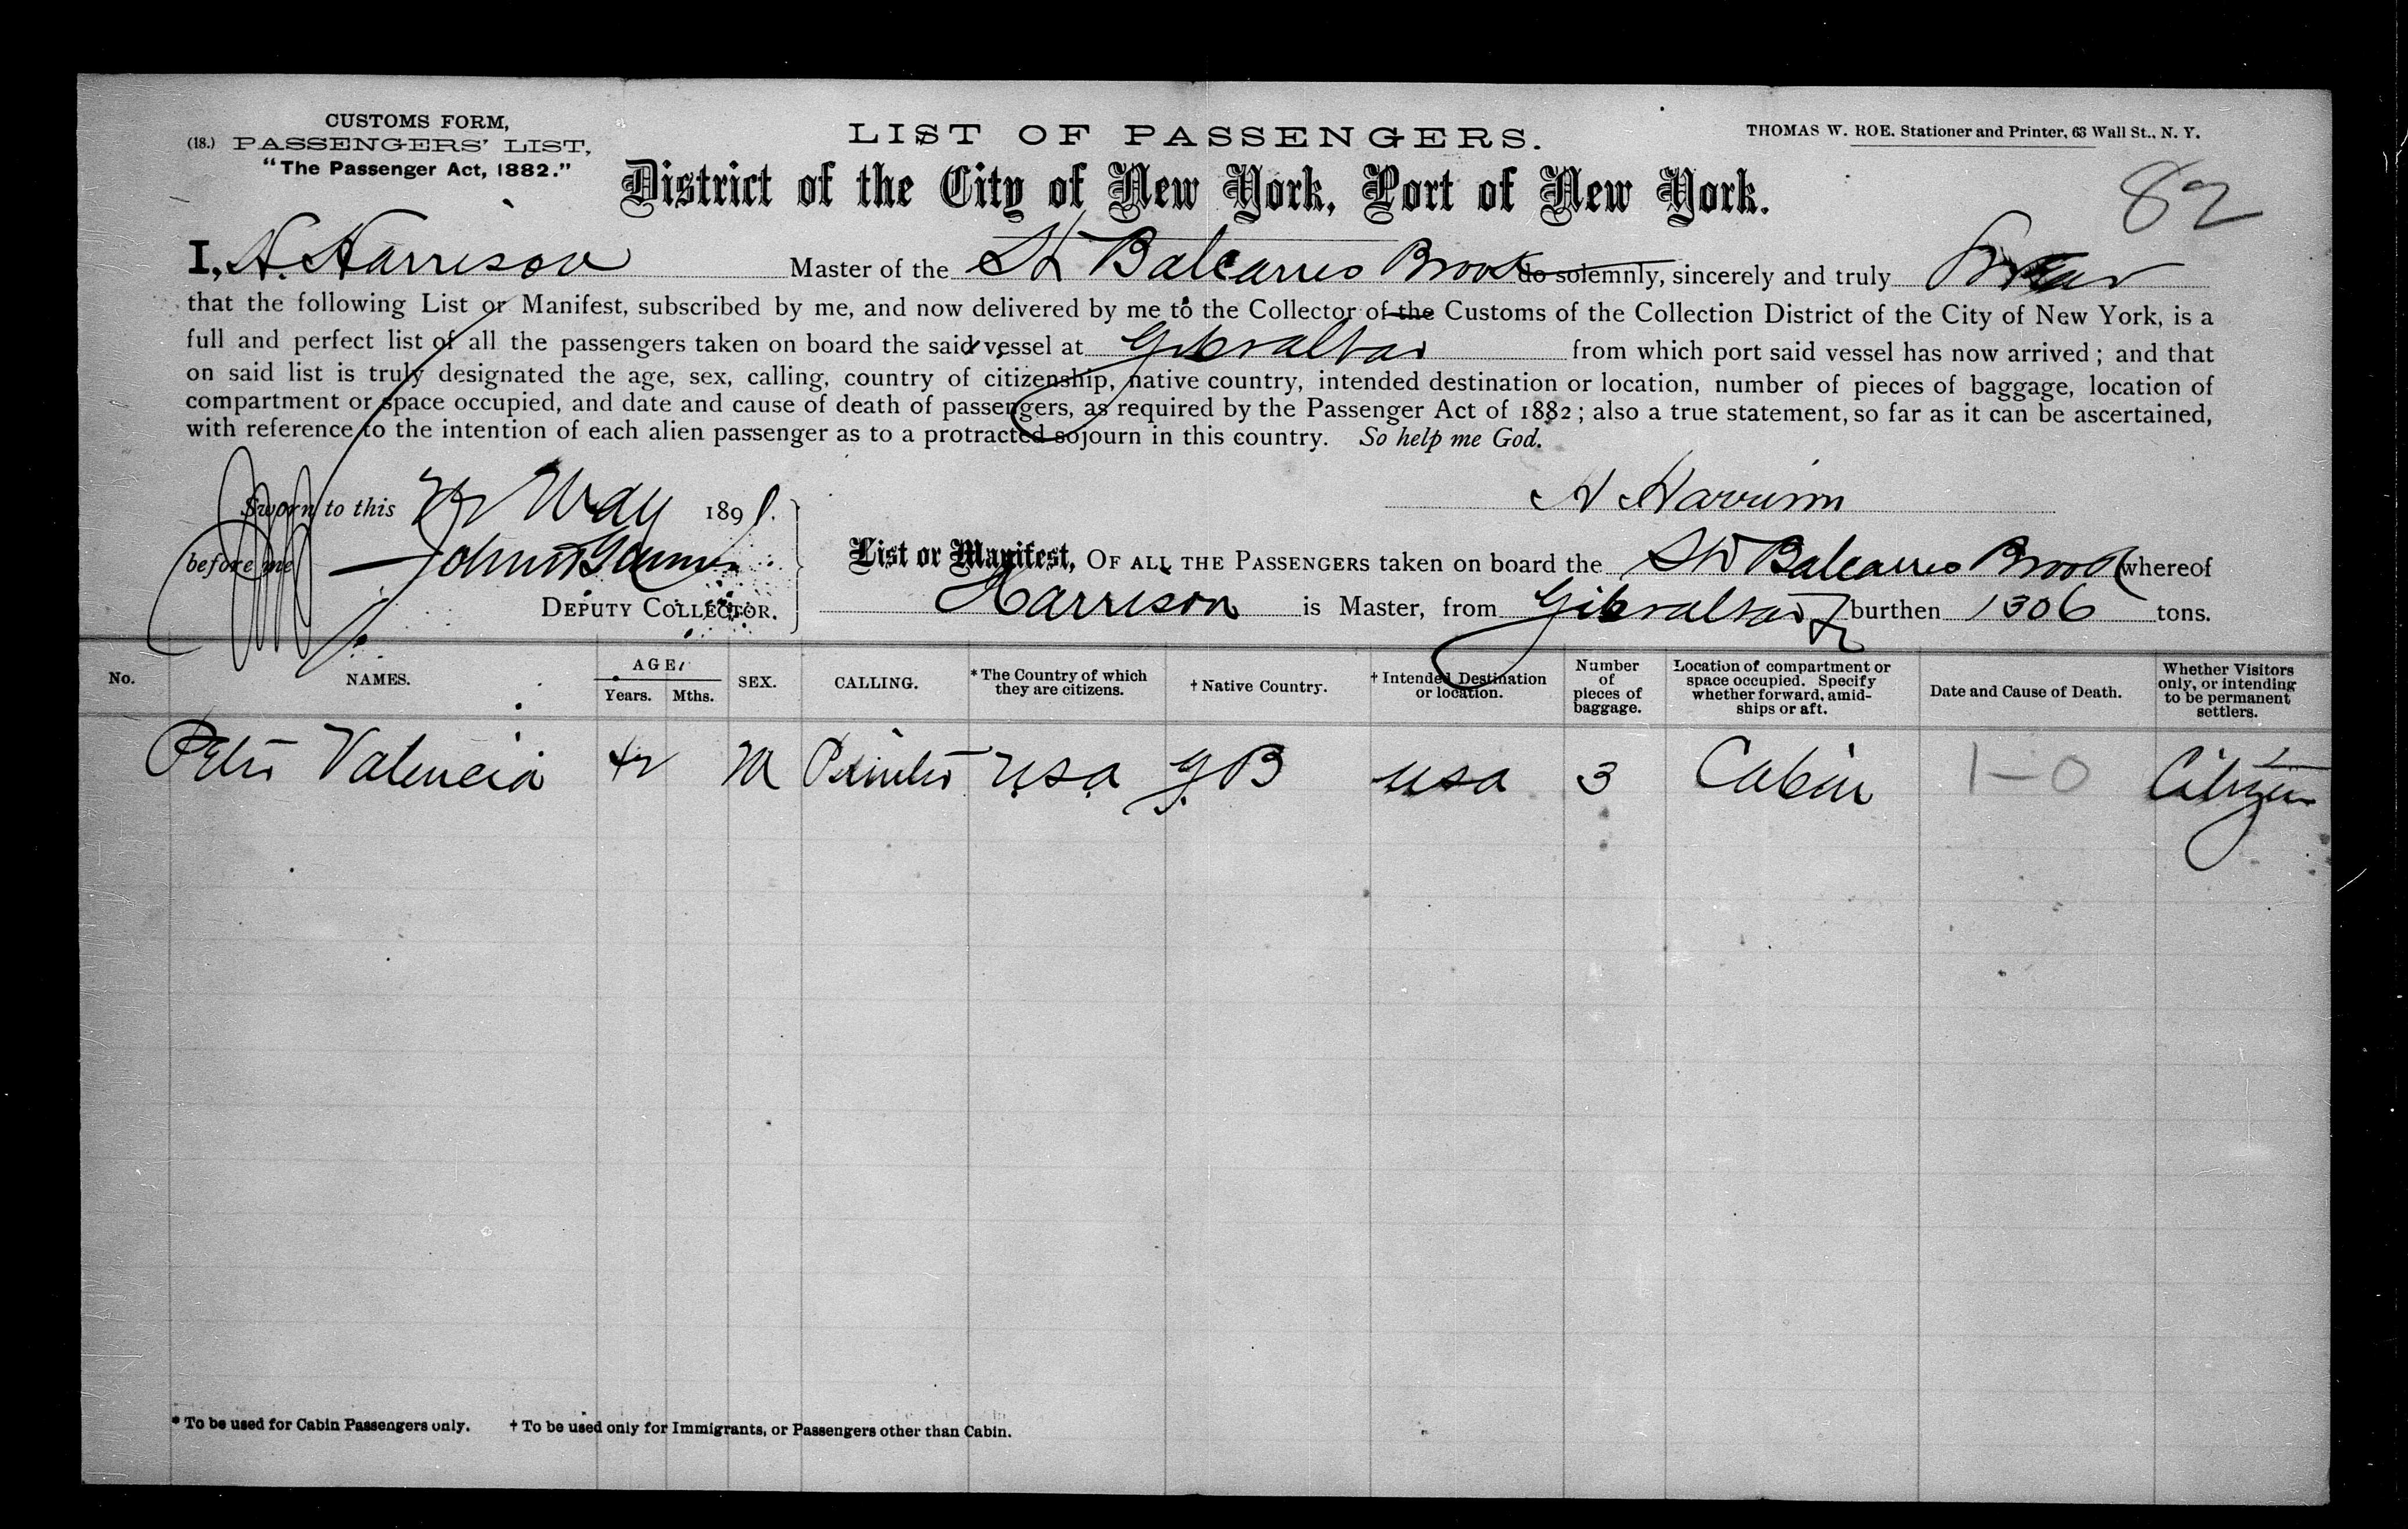 CUSTOMS FORM,
(18.) PASSENGERS' LIST,
"The Passenger Act, 1882."
LIST OF PASSENGERS.
THOMAS W. ROE. Stationer and Printer, 63 Wall St., N. Y.
District of the City of New York, Port of New York.
82
I, H. Harrison Master of the Balcarres Brook do solemnly, sincerely and truly Swear
that the following List or Manifest, subscribed by me, and now delivered by me to the Collector of the Customs of the Collection District of the City of New York, is a
full and perfect list of all the passengers taken on board the said vessel at Gibraltar from which port said vessel has now arrived; and that
on said list is truly designated the age, sex, calling, country of citizenship, native country, intended destination or location, number of pieces of baggage, location of
compartment or space occupied, and date and cause of death of passengers, as required by the Passenger Act of 1882; also a true statement, so far as it can be ascertained,
with reference to the intention of each alien passenger as to a protracted sojourn in this country. So help me God.
Sworn to this May 1891.
H Harrison
before me
List or Manifest, OF ALL THE PASSENGERS taken on board the Balcarres Brook whereof
DEPUTY COLLECTOR.
Harrison is Master, from Gibraltar burthen 1306 tons.
No. NAMES. AGE. Years. Mths. SEX. CALLING. *The Country of which they are citizens. †Native Country. †Intended Destination or location. Number of pieces of baggage. Location of compartment or space occupied. Specify whether forward, amidships or aft. Date and Cause of Death. Whether Visitors only, or intending to be permanent settlers.
Valencia 42 M USA G.B USA 3 Cabin 1-0 Citizen
* To be used for Cabin Passengers only. † To be used only for Immigrants, or Passengers other than Cabin.